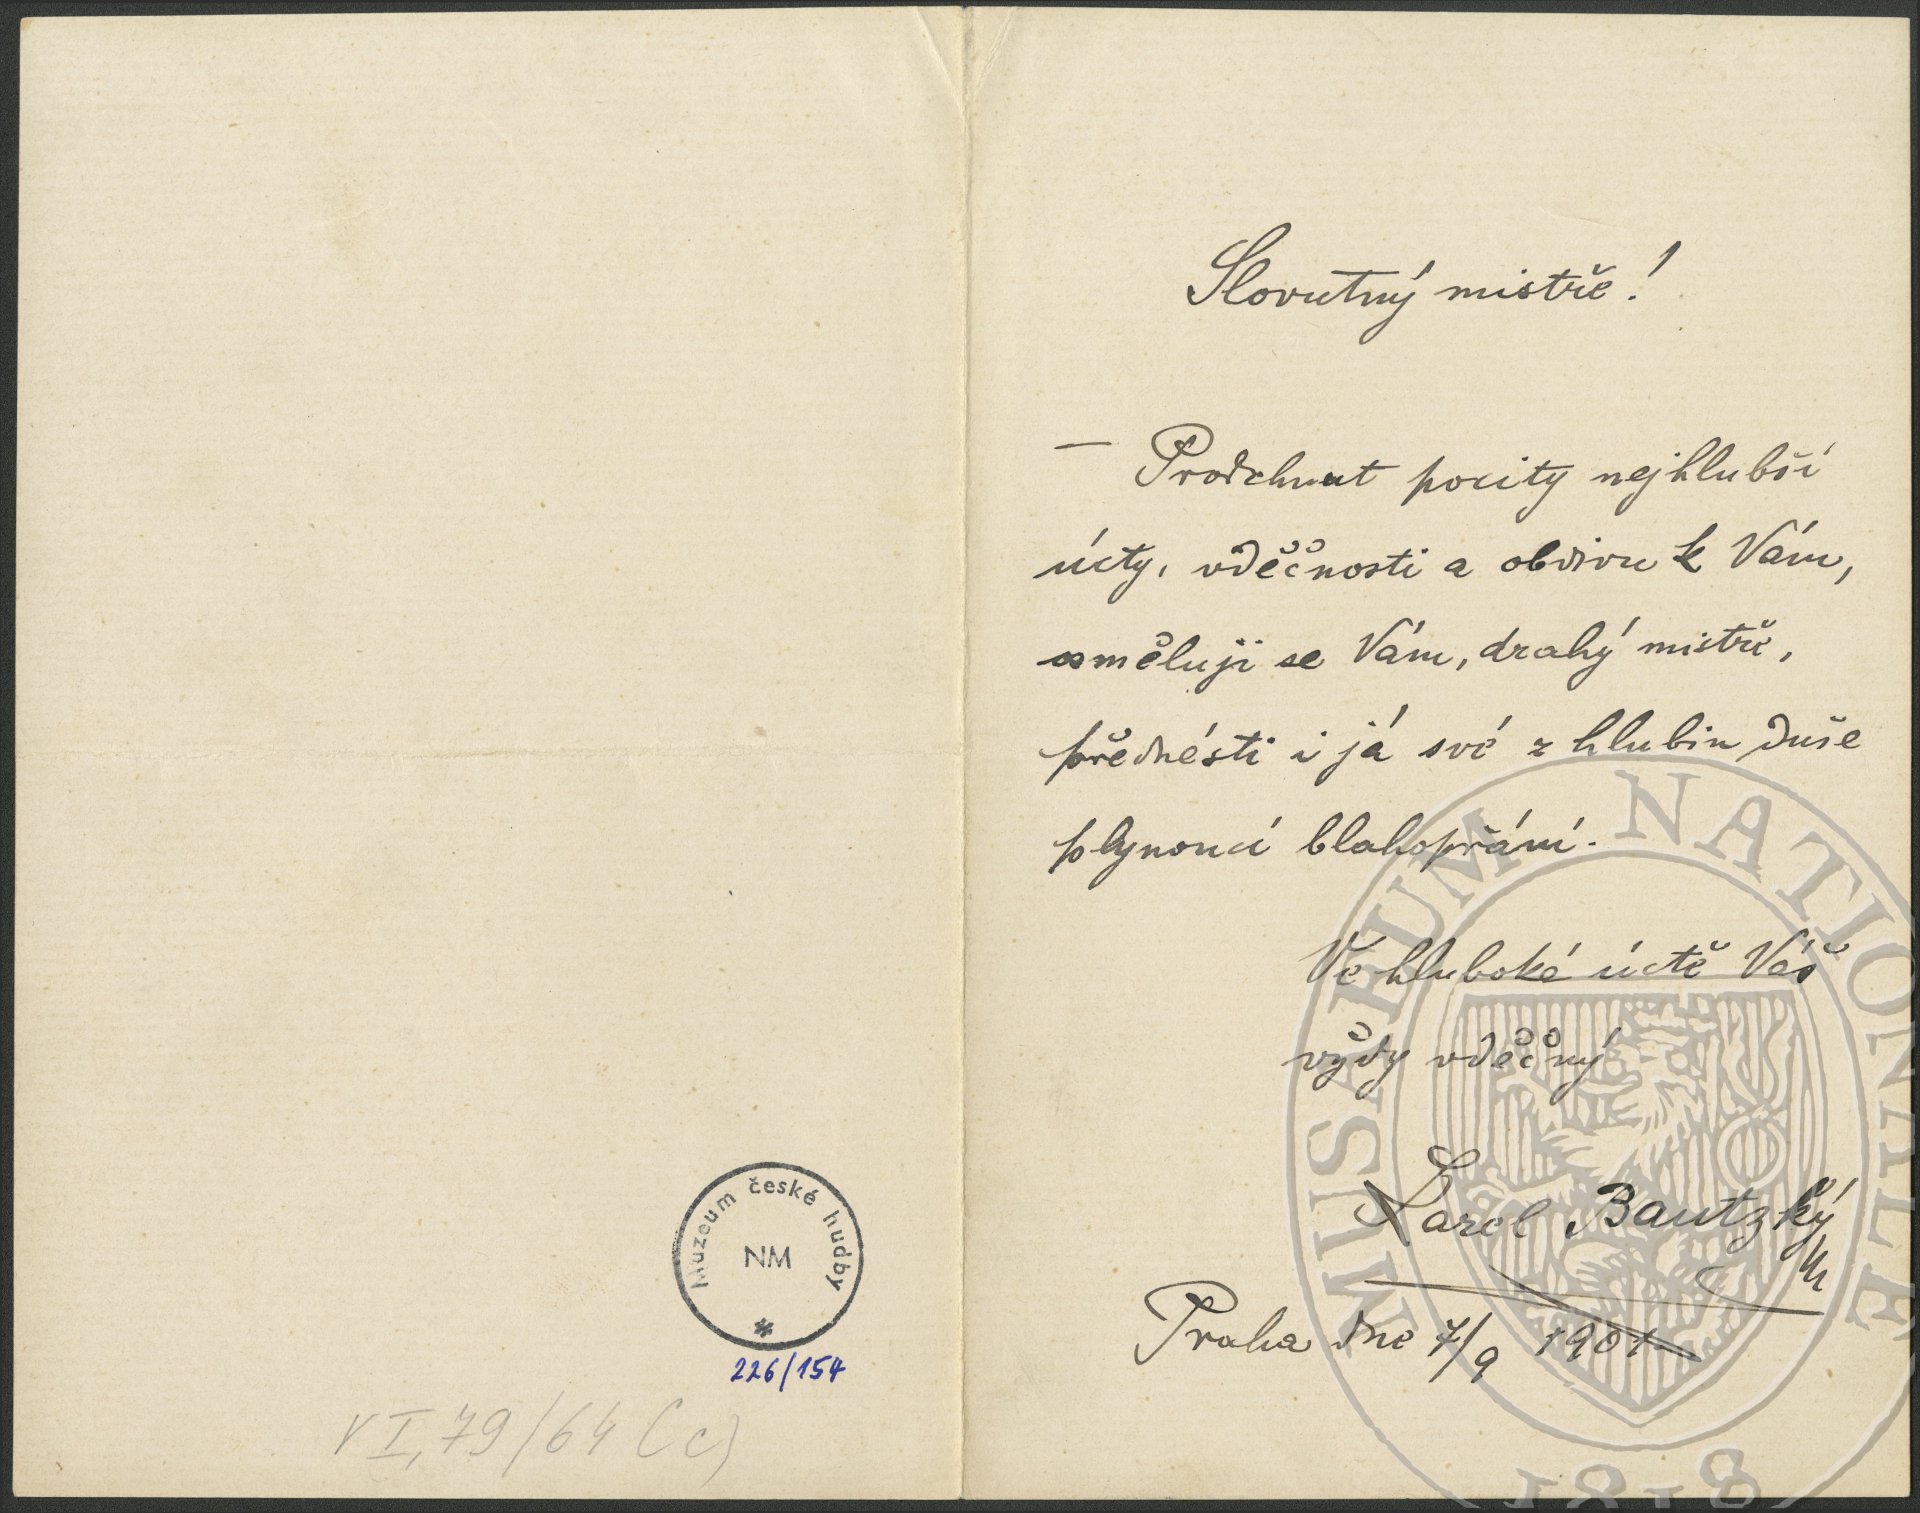 Slovutný mistře!
— Prodchnut pocity nejhlubší
úcty, vděčnosti a obdivu k Vám,
osměluji se Vám, drahý mistře,
přednésti i já své z hlubin duše
plynoucí blahopřání.
Ve hluboké úctě Váš
vždy vděčný
Karel Bautzký
Praha dne 7/9 1901
Muzeum české hudby
NM
226/154
VI, 79/64 (c)
MUSAEUM NATIONALE
1818